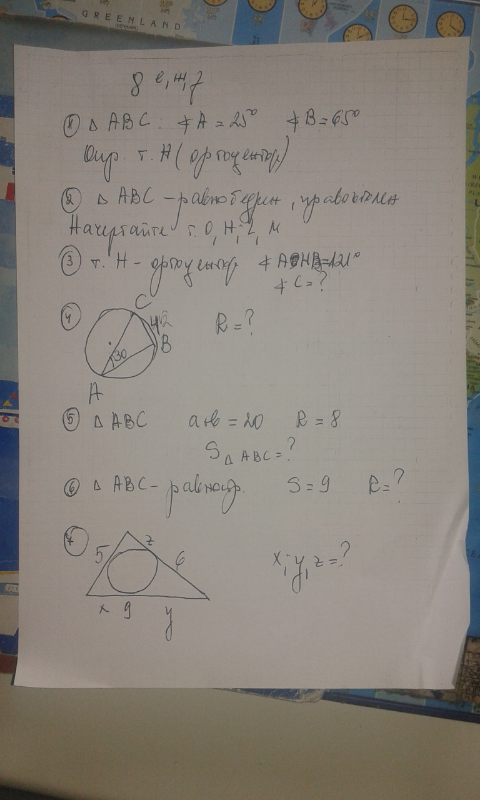 GREENLAND
8 е, ж, з
① △ ABC: ∢ A = 25° ∢ B = 65°
Опр. т. H (ортоцентр)
② △ ABC - равнобедрен, прямоуголен
Начертайте т. O, H, L, M
③ т. H - ортоцентр ∢ AHB = 121°
∢ C = ?
④ C
4√2
R = ?
30
B
A
⑤ △ ABC R = 8
S△ABC = ?
⑥ △ ABC - равностр. S = 9 R = ?
⑦ z
5 6
x, y, z = ?
x 9 y